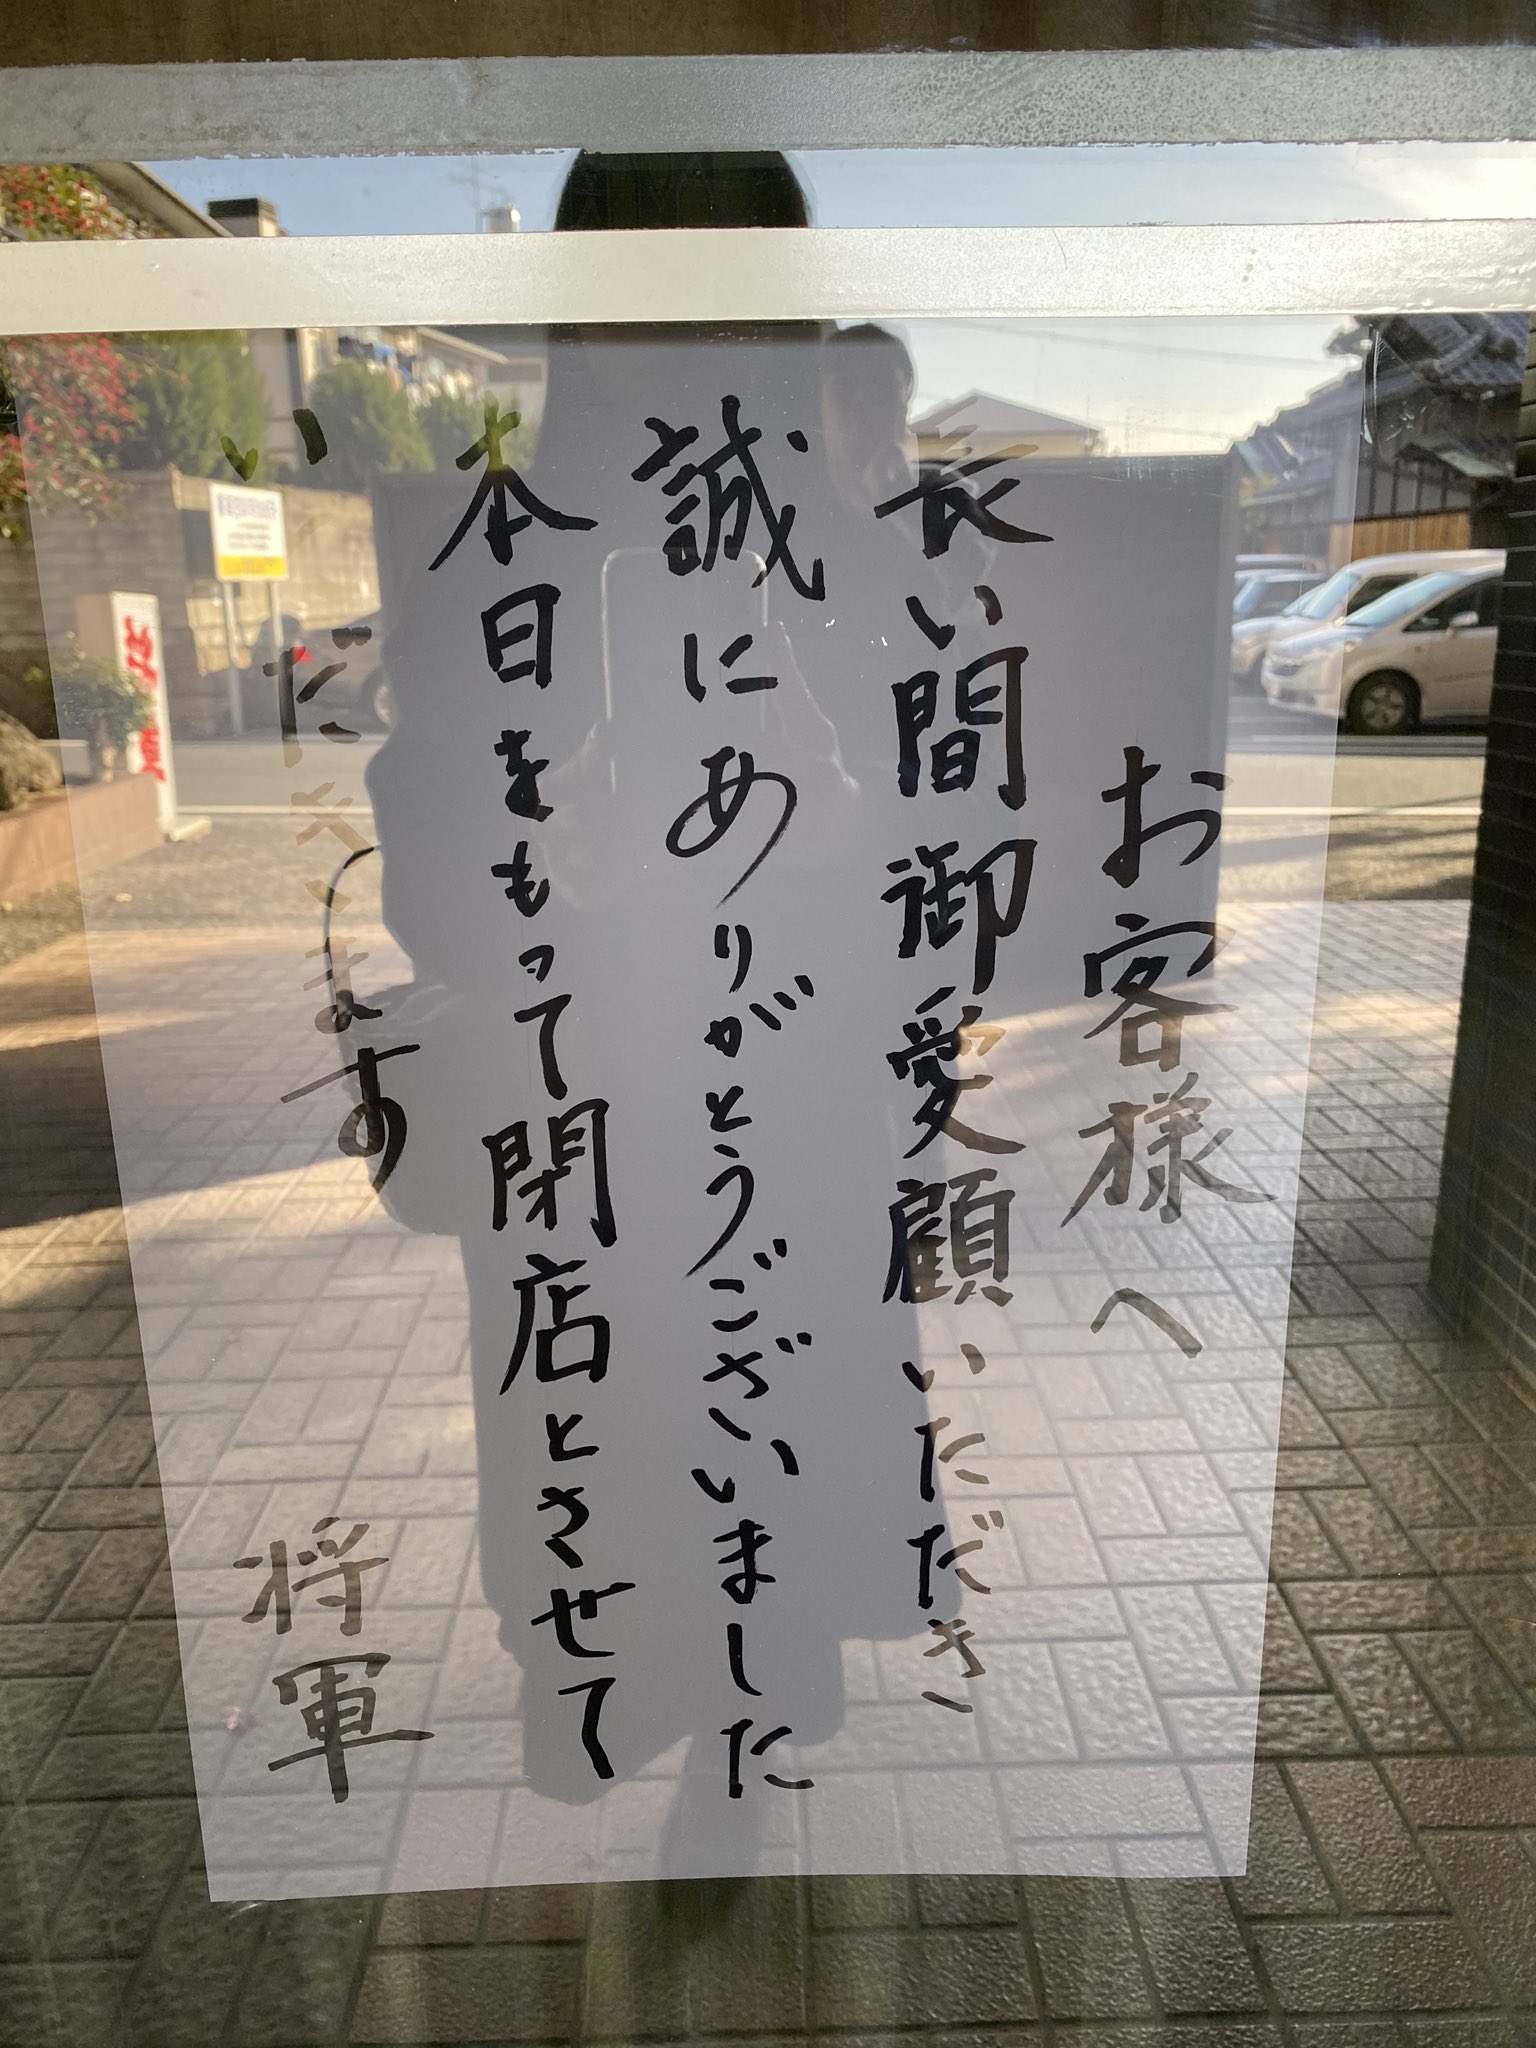 お客様へ
長い間御愛顧いただき
誠にありがとうございました
本日をもって閉店とさせて
いただきます
将軍